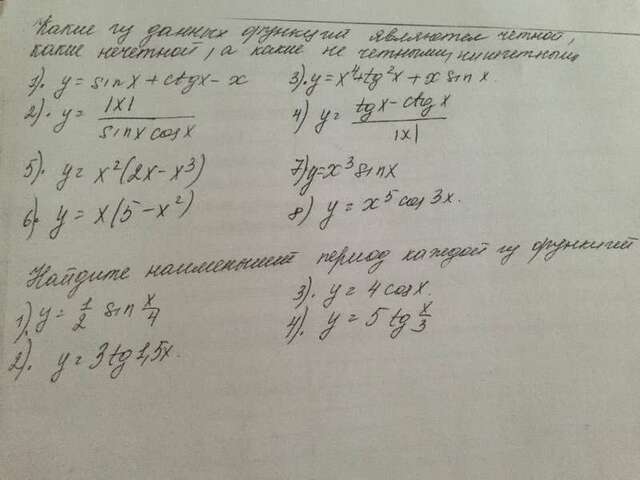 Какие из данных функций являются четной,
какие нечетной, а какие не четными, ни нечетными
1). y = sin x + ctg x - x
3). y = x⁴ + tg²x + x sin x.
2). y = |x| / sin x cos x
4) y = tg x - ctg x / |x|
5). y = x²(2x - x³)
7) y = x³ sin x
6). y = x(5 - x²)
8) y = x⁵ cos 3x.
Найдите наименьший период каждой из функций
1) y = 1/2 sin x/4
3). y = 4 cos x.
2). y = 3 tg 1,5x.
4). y = 5 tg x/3